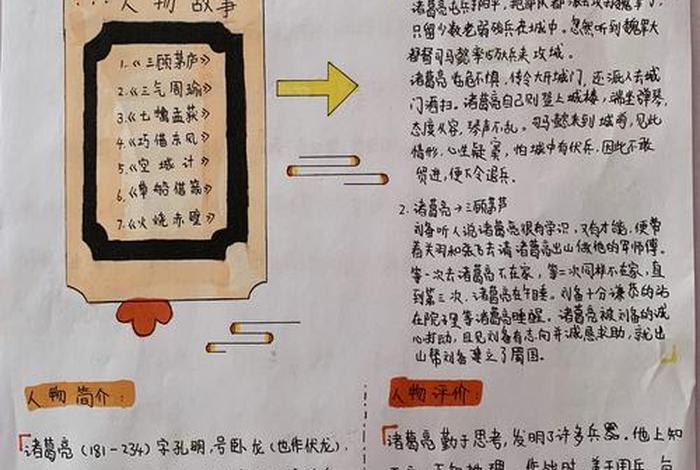 人物故事
1.《三顾茅庐》
2.《三气周瑜》
3.《七擒孟获》
4.《巧借东风》
5.《空城计》
6.《草船借箭》
7.《火烧赤壁》
只留少数老弱残兵在城中。忽然听到魏军大
都督司马懿率15万兵来攻城。
诸葛亮临危不惧，传令大开城门，还派人去城
门洒扫。诸葛亮自己则登上城楼，端坐弹琴，
态度从容，琴声不乱。司马懿来到城前，见此
情形，心生疑窦，怕城中有伏兵，因此不敢
贸进，便下令退兵。
2. 诸葛亮→三顾茅芦
刘备听人说诸葛亮很有学识，又有才能，便带
着关羽和张飞去请诸葛亮出山做他的军师傅。
第一次去诸葛亮不在家，第二次同样不在家，直
到第三次，诸葛亮在午睡。刘备十分谦恭的站
在院子里等诸葛亮睡醒。诸葛亮被刘备的诚
心打动，且见刘备有志向并诚恳求助，就出
山帮刘备建立了蜀国。
人物简介：
诸葛亮（181-234）字孔明，号卧龙（也作伏龙）.
人物评价：
诸葛亮勤于思考，发明了许多兵器。他上知